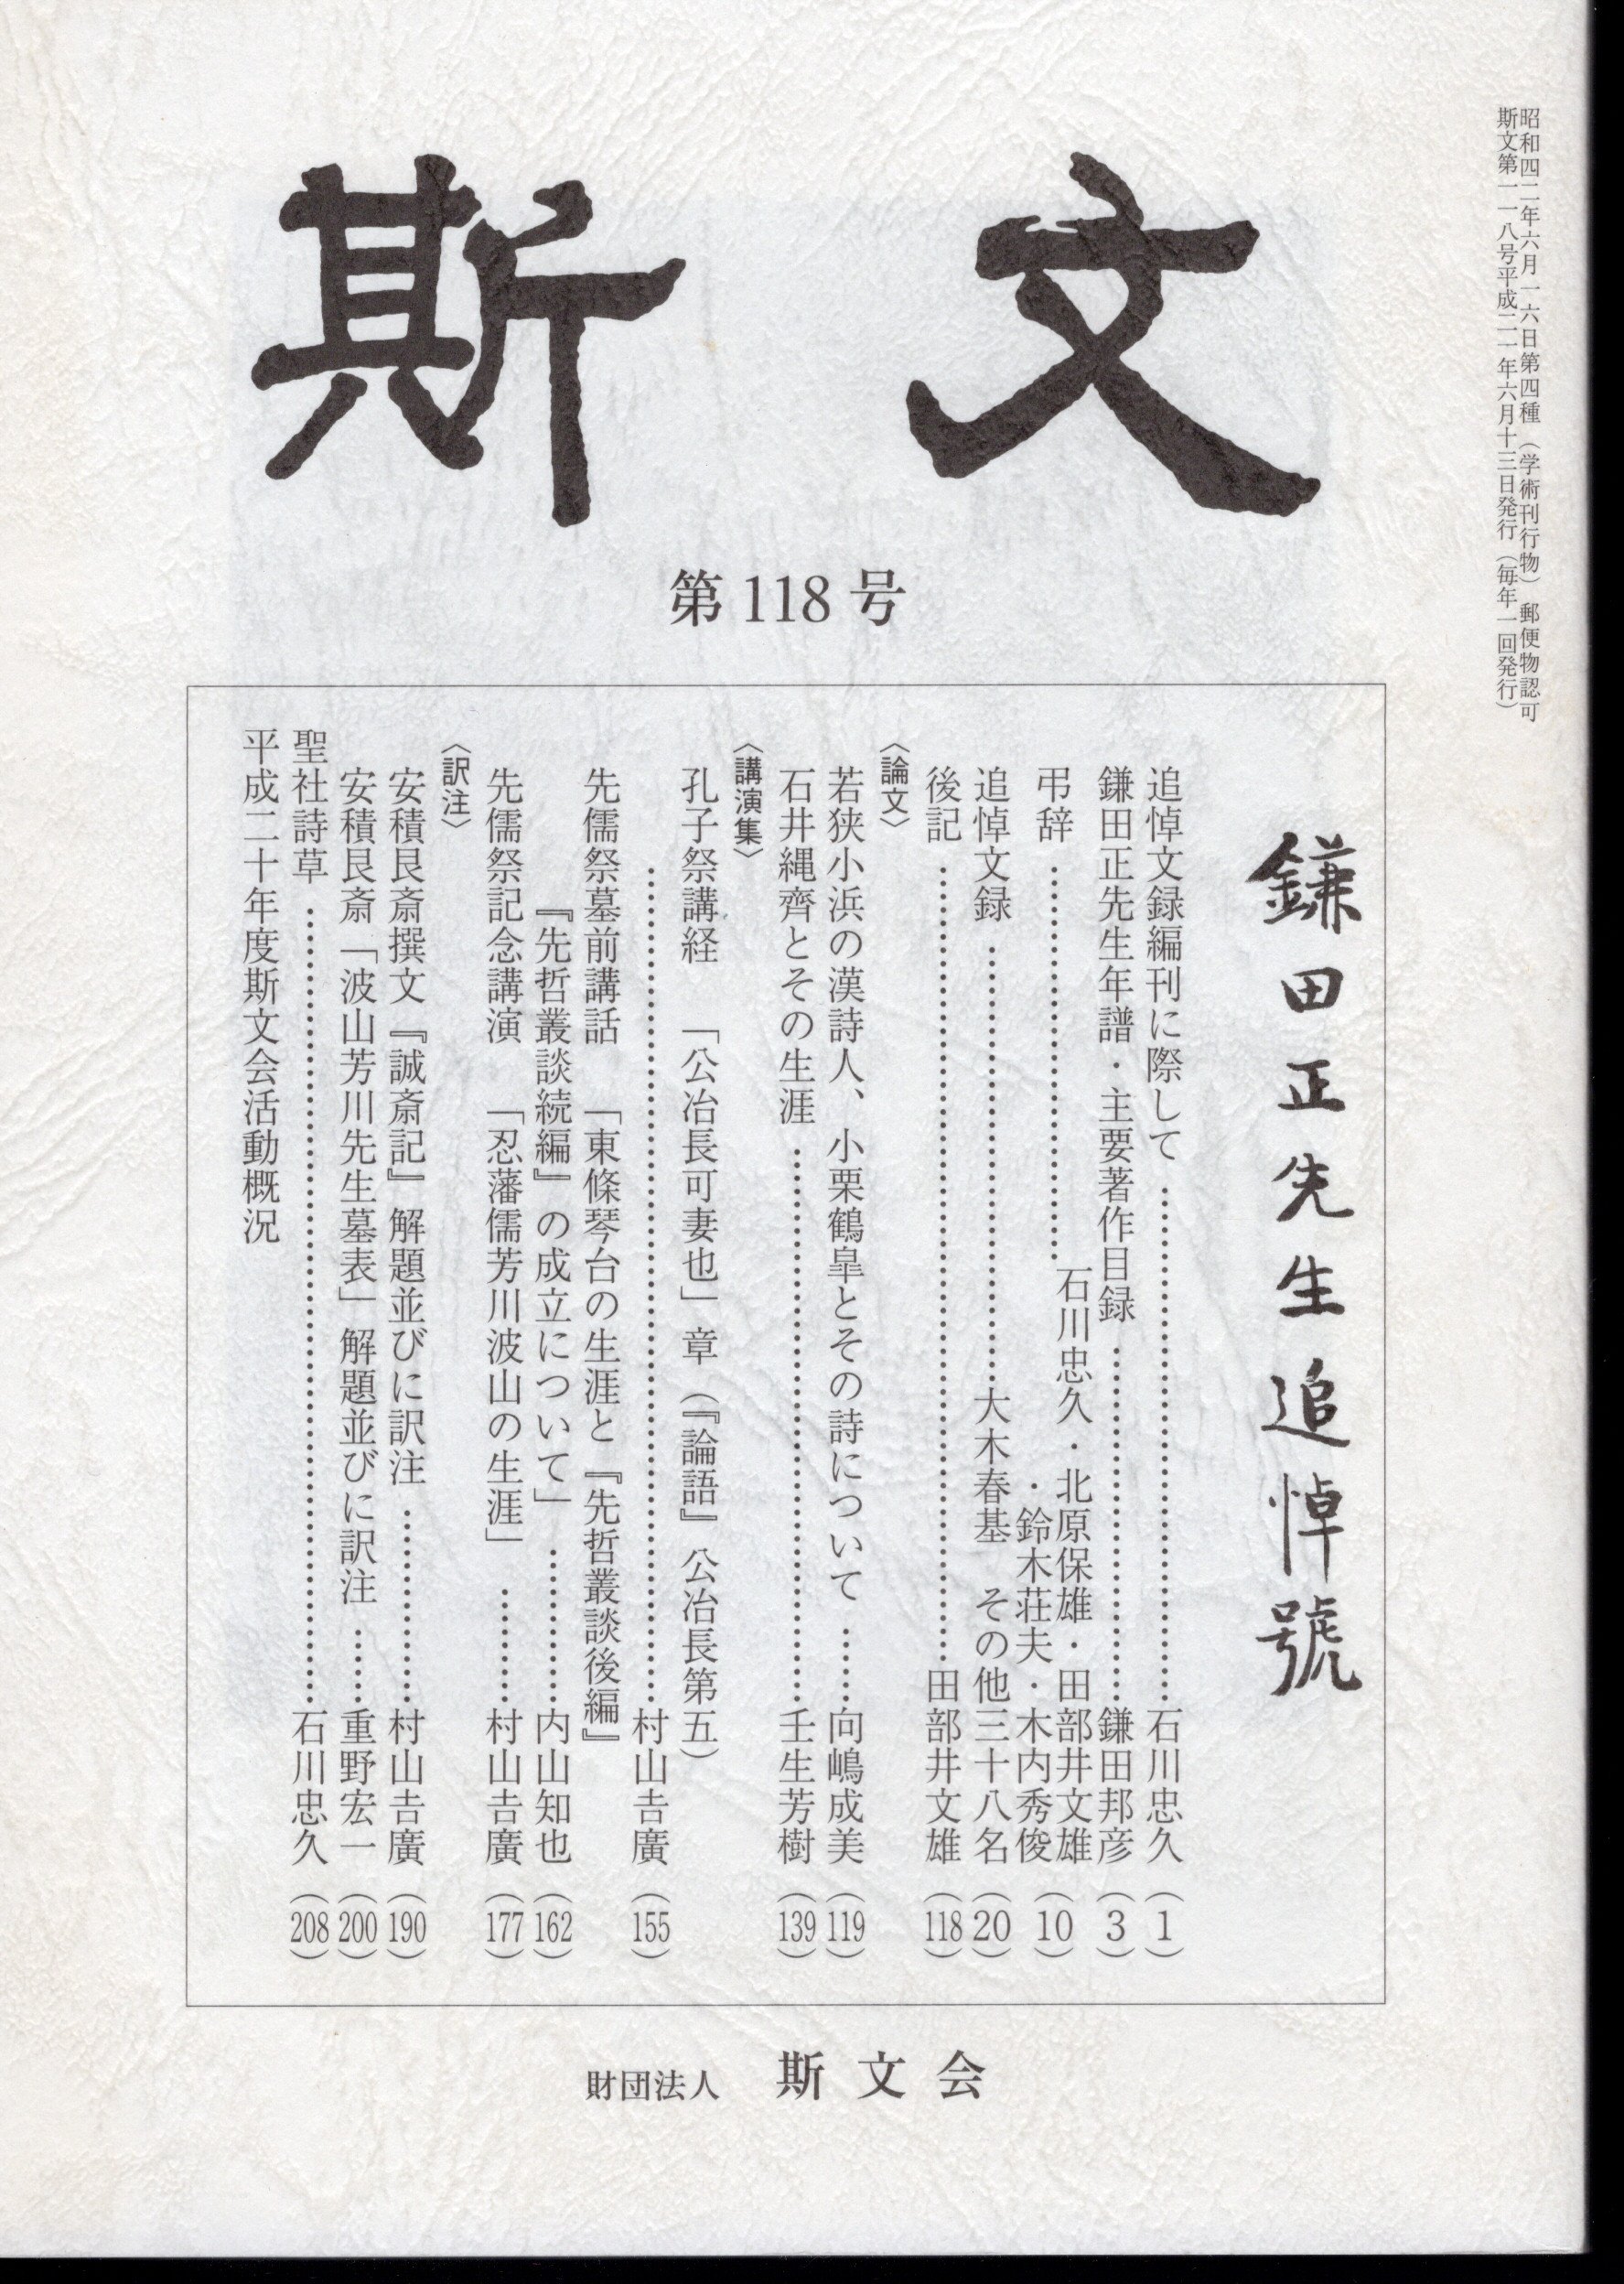 昭和四二年六月一六日第四種(学術刊行物)郵便物認可
斯文第一一八号平成二一年六月十三日発行(毎年一回発行)
斯文
第118号
鎌田正先生追悼號
追悼文録編刊に際して……石川忠久(1)
鎌田正先生年譜・主要著作目録……鎌田邦彦(3)
弔辞……石川忠久・北原保雄・田部井文雄
・鈴木荘夫・木内秀俊(10)
追悼文録……大木春基 その他三十八名(20)
後記……田部井文雄(118)
〈論文〉
若狭小浜の漢詩人、小栗鶴皐とその詩について……向嶋成美(119)
石井縄齊とその生涯……壬生芳樹(139)
〈講演集〉
孔子祭講経 「公冶長可妻也」章(『論語』公冶長第五)
……村山吉廣(155)
先儒祭墓前講話 「東條琴台の生涯と『先哲叢談後編』
『先哲叢談続編』の成立について」……内山知也(162)
先儒祭記念講演 「忍藩儒芳川波山の生涯」……村山吉廣(177)
〈訳注〉
安積艮斎撰文『誠斎記』解題並びに訳注……村山吉廣(190)
安積艮斎「波山芳川先生墓表」解題並びに訳注……重野宏一(200)
聖社詩草……石川忠久(208)
平成二十年度斯文会活動概況
財団法人 斯文会